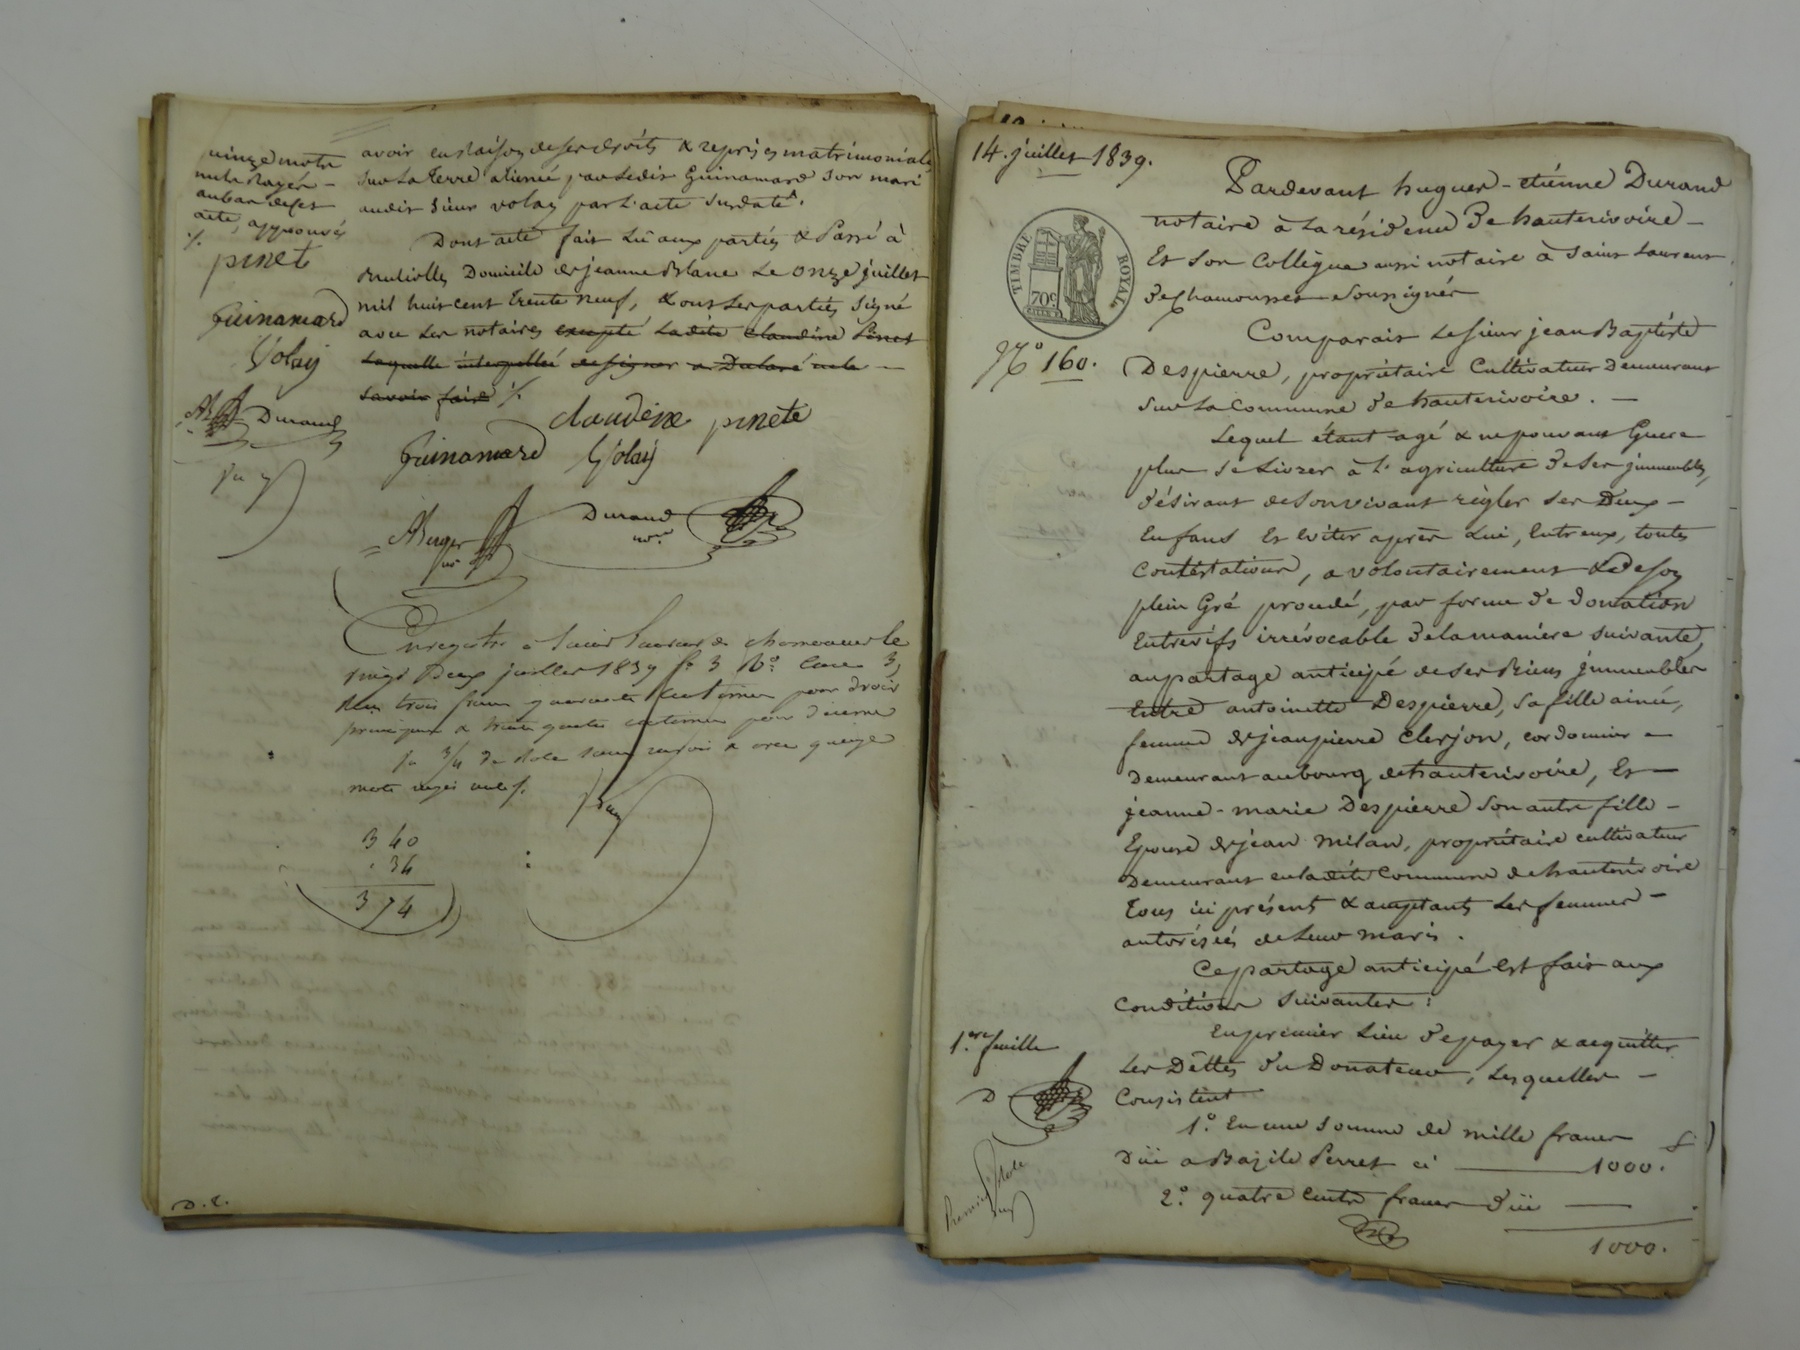 quinze mots
nuls rayés -
au bas de cet
acte, approuvés
./.
pinet
Guinamard
Volay
Durand
avoir en raison de ses droits & reprises matrimoniales
sur la terre aliénée par ledit Guinamard son mari
audit sieur Volay par l'acte susdaté.
Dont acte fait lu aux parties & Passé à
Brullioles Domicile de jeanne Blanc le onze juillet
mil huit cent trente neuf, & ont les parties signé
avec les notaires excepté ladite Claudine Pinet
laquelle interpellée de signer a Déclaré ne le —
savoir faire ./.
claudine pinete
Guinamard Volay
Durand
nore
Enregistré à Saint Laurent de chamousset le
vingt Deux juillet 1839 fo 3 Ro Case 3,
Reçu trois francs quarante centimes pour droit
principal & trente quatre centimes pour décime
mots rayés nuls.
3 40
. 34
3 74
D. E.
14. juillet 1839.
TIMBRE ROYAL
70c
No 160.
Pardevant hugues-étienne Durand
notaire à la résidence De hauterivoire —
Et son Collègue aussi notaire à Saint Laurent
de Chamousset Soussignés
Comparait le sieur jean Baptiste
Despierre, propriétaire Cultivateur Demeurant
sur la Commune De hauterivoire. —
Lequel étant agé & ne pouvant Guère
plus se Livrer à l'agriculture De ses immeubles,
Désirant de son vivant règler ses Deux —
Enfans Et Eviter après Lui, Entr'eux, toutes
Contestations, a volontairement & de son
plein Gré procédé, par forme De donation
Entrevifs irrévocable De la manière suivante,
au partage anticipé de ses Biens immeubles
Entre antoinette Despierre, sa fille ainée,
femme de jean pierre Clerjon, cordonnier —
Demeurant au bourg de hauterivoire, Et —
jeanne-marie Despierre son autre fille —
Epouse de jean Milan, propriétaire cultivateur
Demeurant en ladite Commune de hauterivoire
tous ici présents & acceptants les femmes —
autorisées de leurs maris.
Ce partage anticipé Est fait aux
Conditions suivantes :
En premier Lieu De payer & acquitter
Les Dettes Du Donateur, Lesquelles —
Consistent
1.o En une somme de mille francs
Düe a Bazile Perret ci — 1000.
2.o quatre cents francs Düe —
1000.
1.ere feuille
D
Premier Role